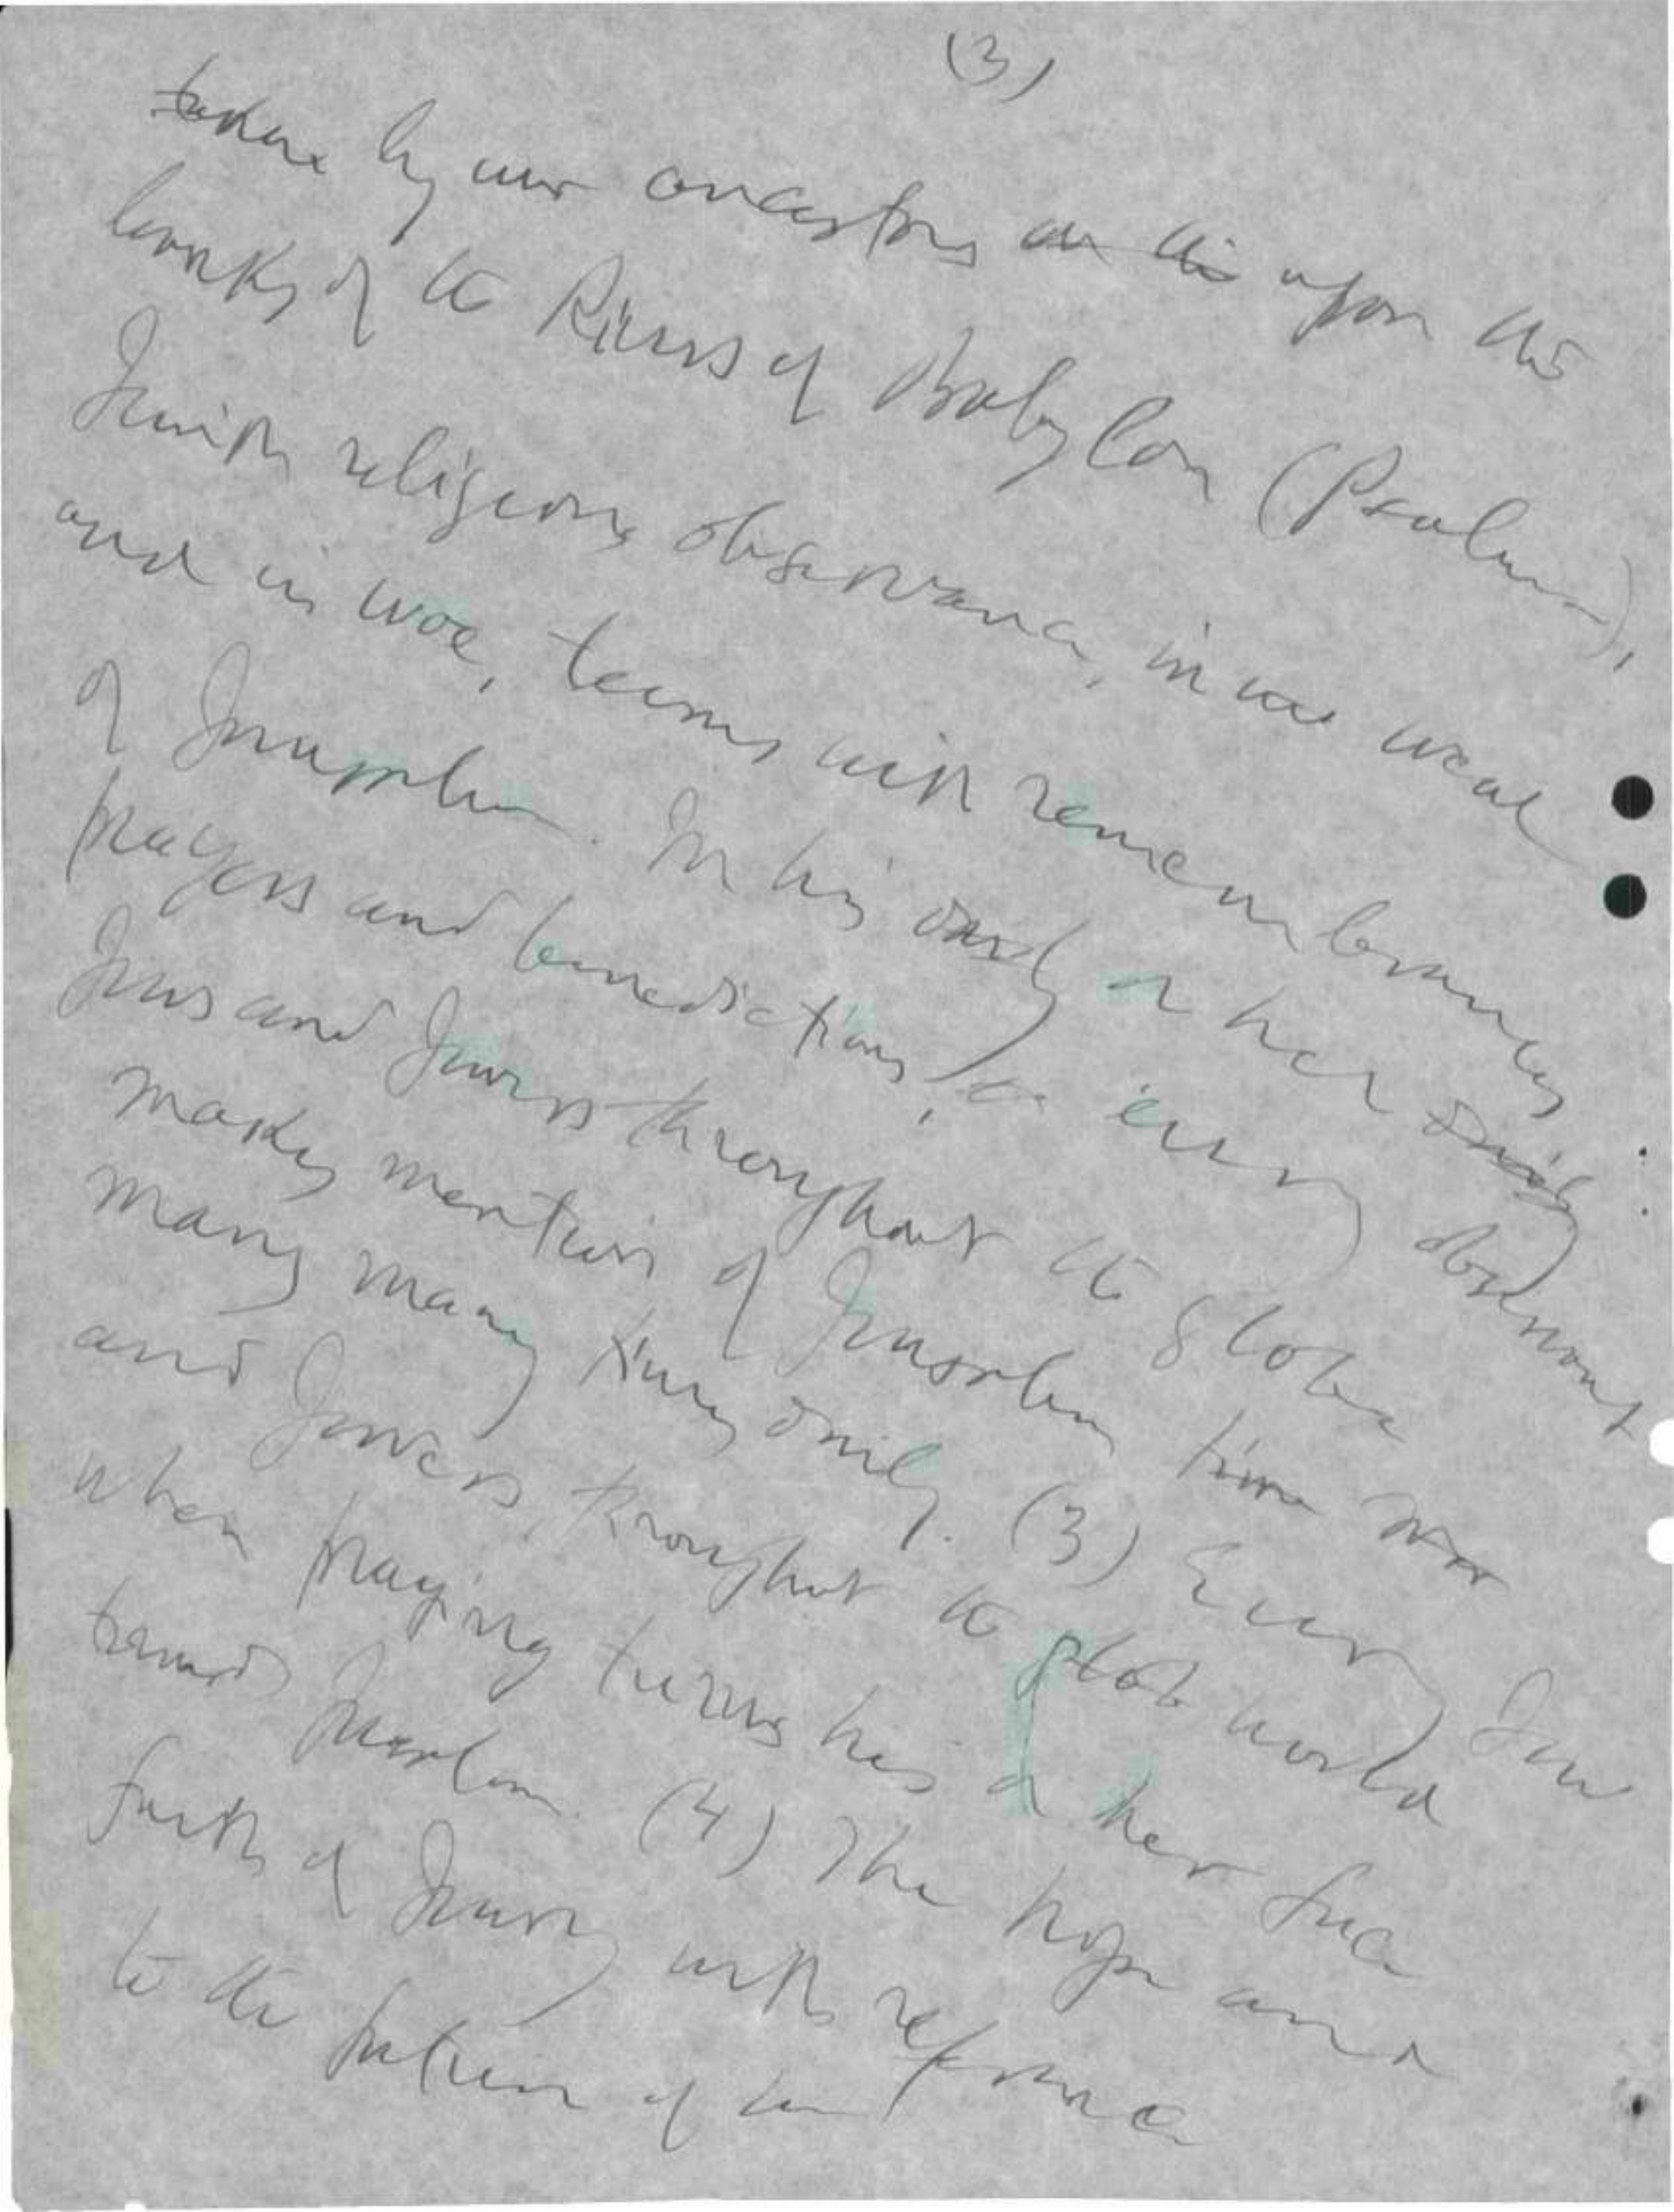 (3)
taken by our ancestors on the upon the
banks of the Rivers of Babylon (Psalms),
Jewish religious observance, in woe weal
and in woe, teems with remembrances
of Jerusalem. In his and or her daily
prayers and benedictions, every observant
Jews and Jewess throughout the globe
makes mention of Jerusalem time
many many times daily. (3) Every Jew
and Jewess, throughout the globe world
when praying turns his or her face
towards Jerusalem. (4) The hope and
faith of Jewry with reference
to the future of